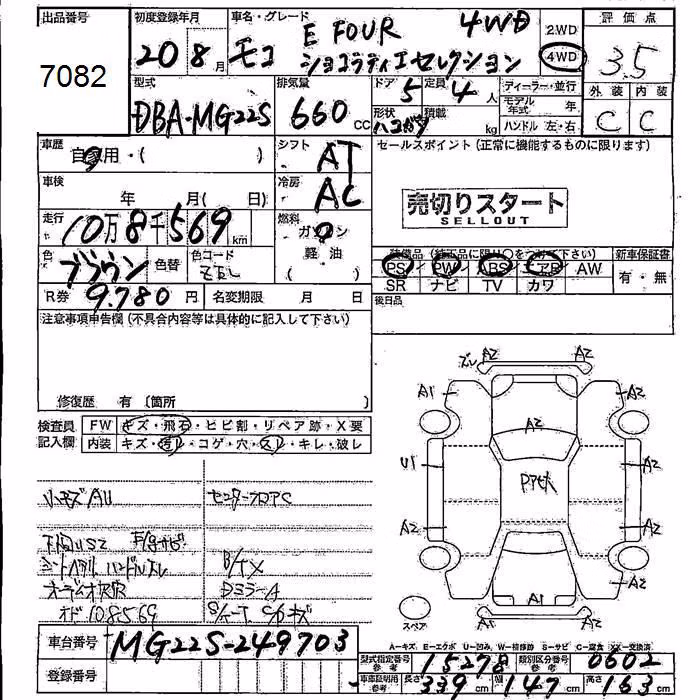 出品番号 初度登録年月 車名・グレード 評価点
7082
20 8月 モコ E FOUR 4WD
ショコラティエセレクション
2.WD
4WD
3.5
型式 排気量 ドア 定員 ディーラー・並行 外装 内装
DBA-MG22S 660 CC 5 4人 モデル年式 年 C C
形状 積載 kg ハンドル 左・右
車歴 自家用・( ) シフト AT セールスポイント (正常に機能するものに限ります)
車検 年 月( 日) 冷房 AC
売切りスタート
SELLOUT
走行 10万8千569km 燃料 ガソリン
軽油
色 ブラウン 色替 色コード ZTL
装備品 (純正品に限り○をつけて下さい) 新車保証書
PS PW ABS エアB AW 有・無
SR ナビ TV カワ
R券 9.780円 名変期限 月 日 後日品
注意事項申告欄 (不具合内容等は具体的に記入して下さい)
修復歴 有 〔箇所 〕
検査員記入欄 FW キズ・飛石・ヒビ割・リペア跡・X要
内装 キズ・汚レ・コゲ・穴・スレ・キレ・破レ
小キズAU
下回りUS2
シートヘタリ ハンドルスレ
オーディオ欠
オド108569
B/TX
DミラーA
ズレ A2 A2
A1 A2
A2
U1 A2
A2 A2
A1
A2 A2
スペア
車台番号 MG22S-249703
登録番号
A-キズ E-エクボ U-凹み W-補修跡 S-サビ C-腐食 XX-交換済
型式指定番号 参考 15278 類別区分番号 参考 0602
車庫証明用 参考 長さ 339cm 幅 147cm 高さ 163cm